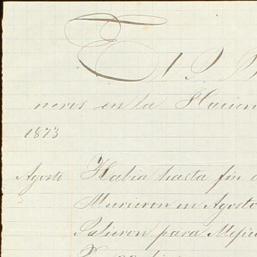 neros en la Hacien
1873
Agosto Habia hasta fin d
Murieron en Agosto
Salieron para Mejic